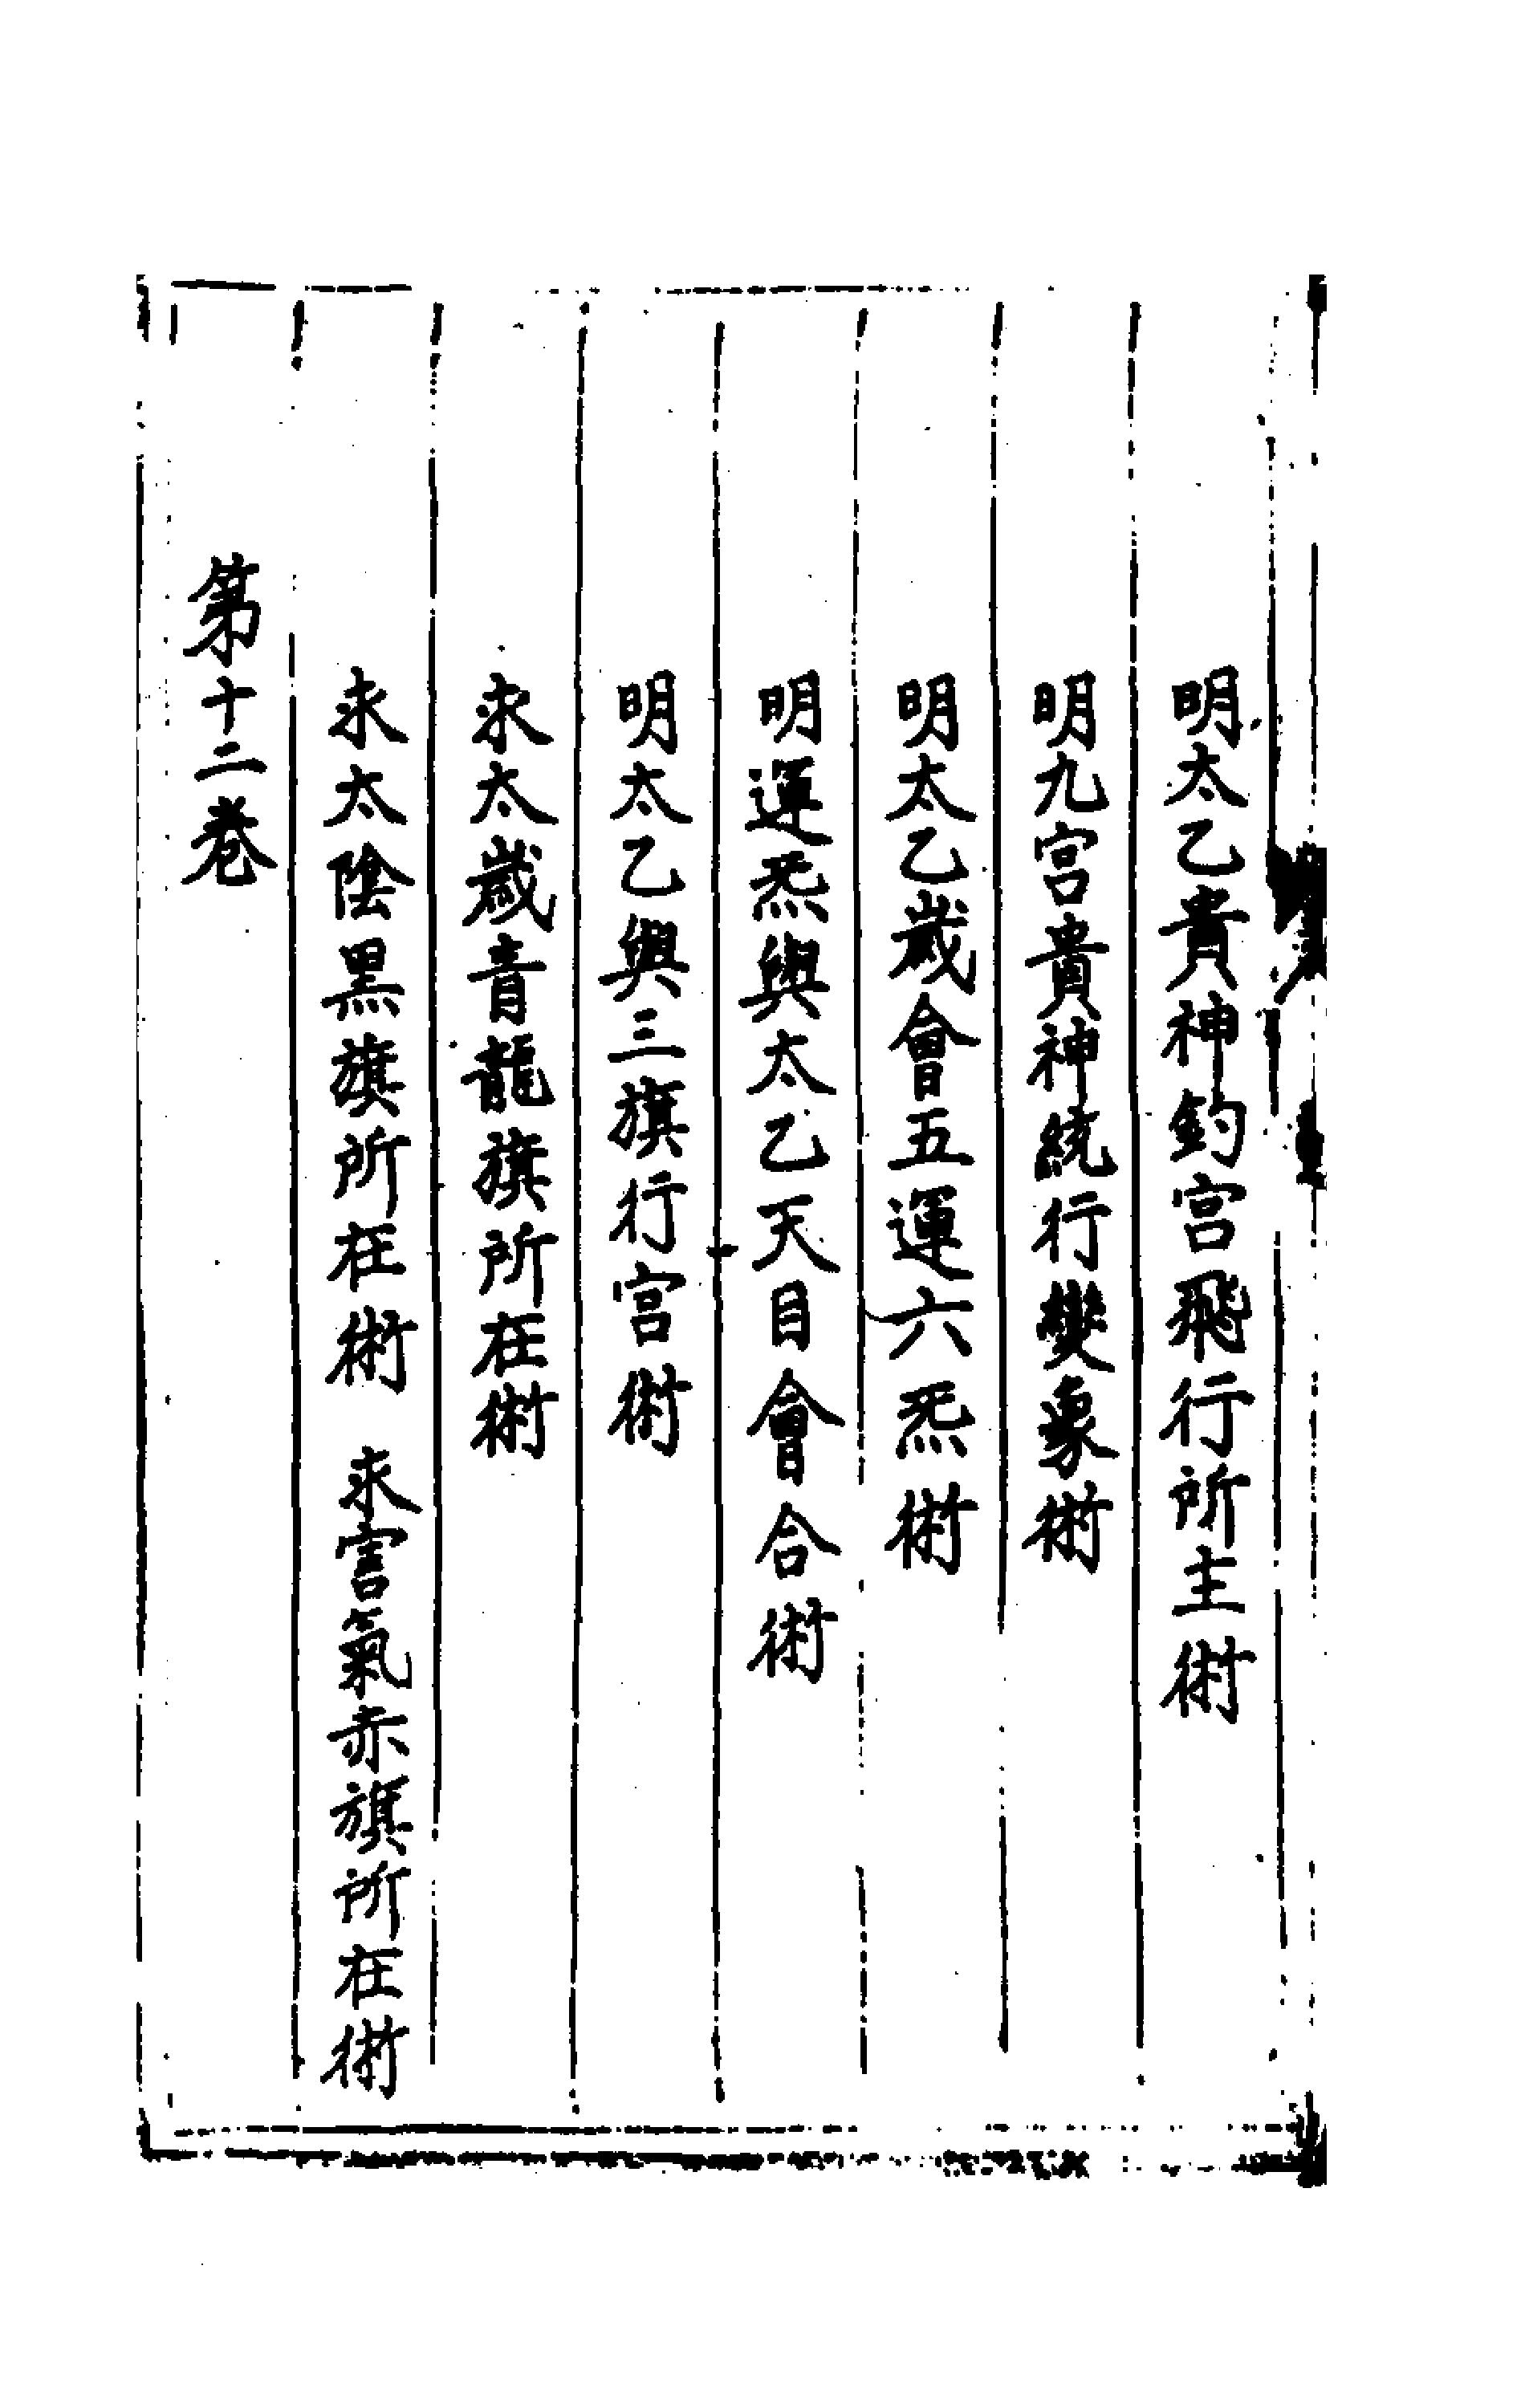 明太乙貴神釣宮飛行所主術
明九宮貴神統行變象術
明太乙歲會五運六炁術
明運炁與太乙天目會合術
明太乙與三旗行宮術
求太歲青龍旗所在術
求太陰黑旗所在術　求害氣赤旗所在術
第十二卷